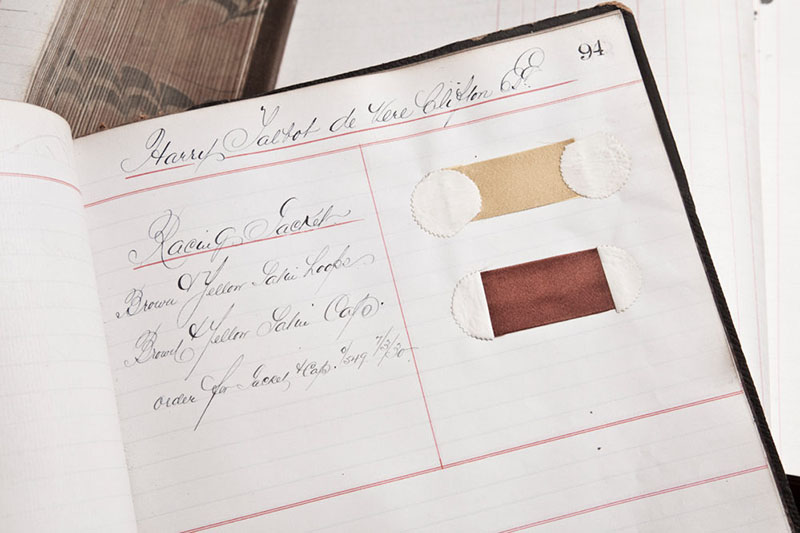 94
Harry Talbot de Vere Clifton Esq.
Racing Jacket
Brown & Yellow Satin hoops
Brown & Yellow Satin Cap.
order for Jacket & Cap.